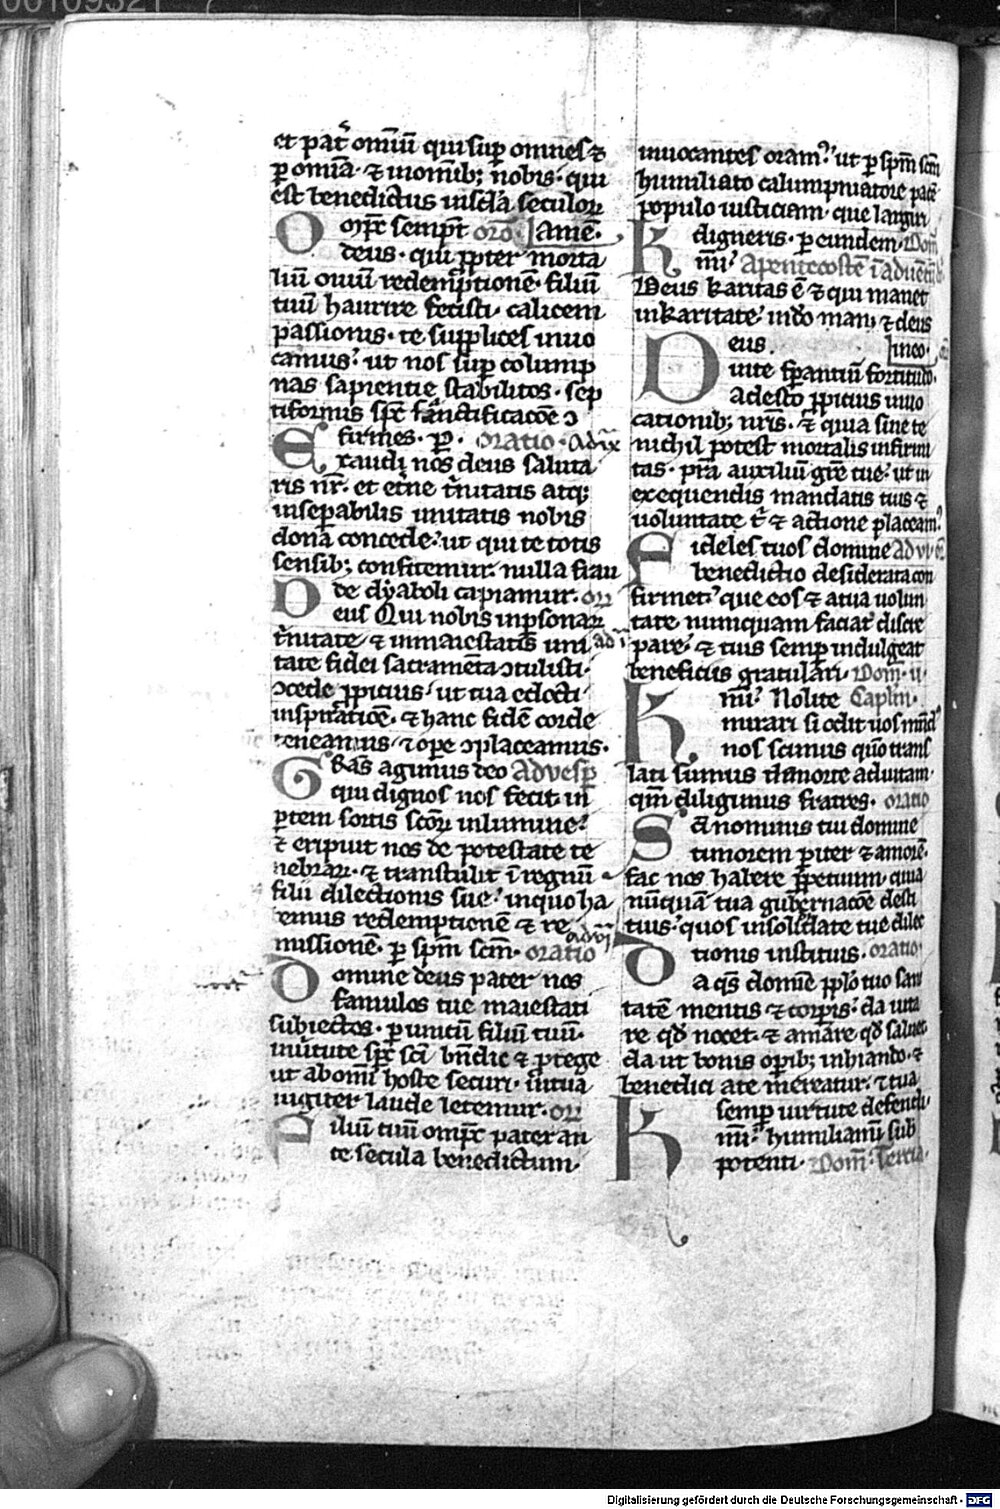 et pat̄ omiū qui suꝑ omnes ⁊
ꝑ omīa · ⁊ in omīb; nobis · qui
est benedictus in sc̄lā seculoꝝ
Omp̄c sempt̄ oro amē ·
deus · qui ꝓpter morta
liū oīum redemptionē filiū
tuū haurire fecisti · calicem
passionis · te supplices inuo
camus · ut nos suꝑ colump
nas sapientie stabilitos · sep
tiformis sp̄c sanctificacōe ↄ
firmes · ꝑ · oratio · ad ix
Exaudi nos deus saluta
ris nr̄ · et et̄ne t̄nitatis atq;
inseꝑabilis unitatis nobis
dona concede · ut qui te totis
sensib; confitemur · nulla frau
de dyaboli capiamur · oꝝ
Deus Qui nobis in ꝑsonaꝝ
t̄nitate · ⁊ in maiestatis uni ad
tate fidei sacramēta ↄtulisti ·
ↄcede ꝓpicius · ut tua edocti
inspiratiōe · ⁊ hanc fidē corde
teneamus · ⁊ ope ↄplaceamus ·
Gr̄as agimus deo Ad vesꝑ
qui dignos nos fecit in
ꝑtem sortis sc̄oꝝ in lumine ·
⁊ eripuit nos de potestate te
nebraꝝ · ⁊ transtulit ī regnū
filii dilectionis sue · in quo ha
bemus redemptionē ⁊ re
missionē · ꝑ spm̄ sc̄m · oratio
Domine deus pater nos
famulos tue maiestati
subiectos · ꝑ unicū filiū tuū ·
in ūtute sp̄c sc̄i bn̄dic ⁊ ꝓtege
ut ab om̄i hoste securi · in tua
iugiter laude letemur · oꝝ
Filiū tuū omp̄c pater an
te secula benedictum ·
inuocantes oram · ut ꝑ spm̄ sc̄m
humiliato calumpniatore pat̄
populo iusticiam · que largiri
digneris · ꝑ eundem · Dom̄
K mi · A pentecostē ī aduentū
Deus karitas ē ⁊ qui manet
in karitate · in do man; ⁊ deus
Deus . in eo ·
in te sꝑantiū fortitudo ·
adesto ꝓpicius inuo
cationib; nris · ⁊ quia sine te
nichil potest mortalis infirmi
tas · pr̄a auxiliū gr̄e tue · ut in
exequendis mandatis tuis ⁊
uoluntate t̄ ⁊ actione placeam
Fideles tuos domine Ad vi
benedictio desiderata con
firmet · que eos ⁊ a tua uolun
tate numquam faciat discre
pare · ⁊ tuis semꝑ indulgeat
beneficiis gratulari · Dom̄ · ii ·
K mi · Nolite Caplm̄ ·
mirari si odit uos mūd
nos scimus qūo trans
lati sumus de morte ad uitam ·
qm̄ diligimus fratres · oratio
Sancti nominis tui domine
timorem ꝑiter ⁊ amorē ·
fac nos habere ꝑpetuum · quia
nūquā tua gubernacōe desti
tuis · quos in soliditate tue dilec
tionis instituis · oratio ·
Da qs̄ domīe pplo tuo sani
tatē mentis ⁊ corꝑis · da uita
re qd̄ nocet · ⁊ amare qd̄ saluet
da ut bonis opib; inhiando · ⁊
benedici a te mereatur · ⁊ tua
semꝑ uirtute defendi ·
K mi · humiliamī sub
potenti · Dom̄ · Tertia ·
Digitalisierung gefördert durch die Deutsche Forschungsgemeinschaft - DFG